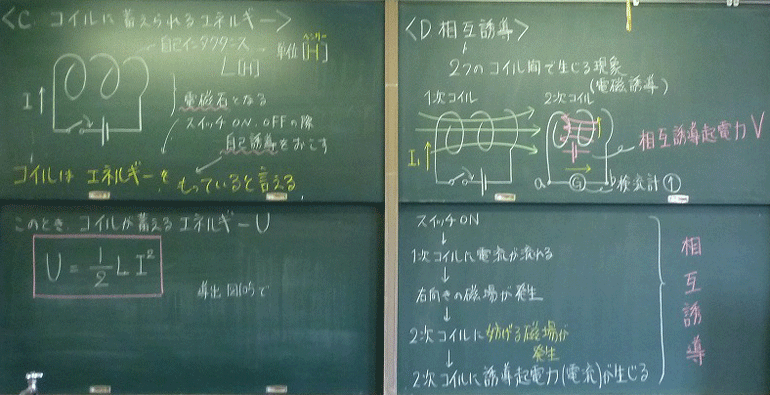 <C. コイルに蓄えられるエネルギー>
自己インダクタンス
L[H]
単位[H]
ヘンリー
I
電磁石となる
スイッチON、OFFの際
自己誘導をおこす
コイルは エネルギーを もっていると言える
このとき、コイルが蓄えるエネルギーU
U = 1/2 L I²
<D 相互誘導>
2つのコイル間で生じる現象
(電磁誘導)
1次コイル
2次コイル
I₁
相互誘導起電力V
a
G
b
検流計
スイッチON
↓
1次コイルに電流が流れる
↓
右向きの磁場が発生
↓
2次コイルに妨げる磁場が
発生
↓
2次コイルに誘導起電力(電流)が生じる
相互誘導